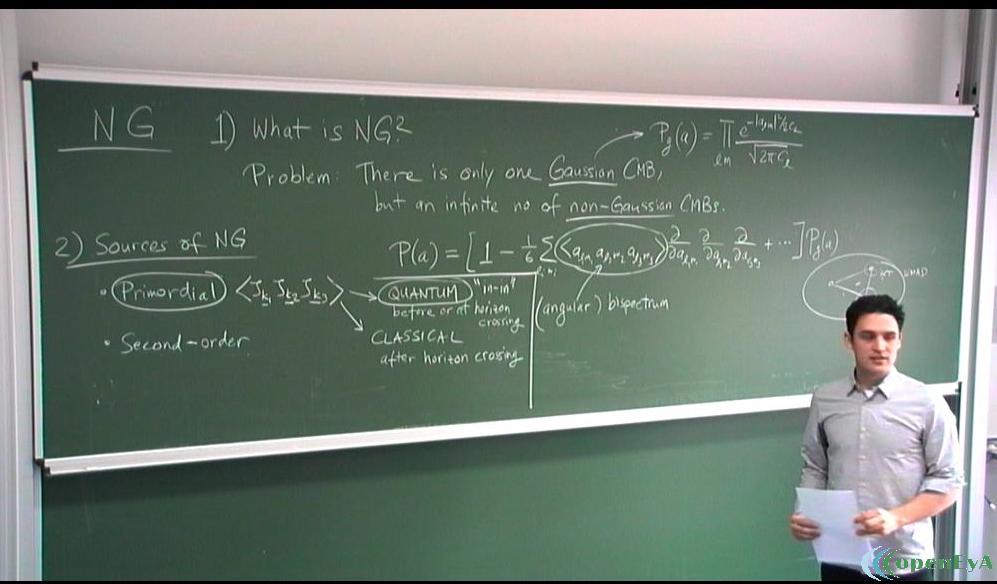 NG 1) What is NG?
P_g(a) = ∏_{lm} e^{-|a_{lm}|²/2C_l} / √(2πC_l)
Problem: There is only one Gaussian CMB,
but an infinite no of non-Gaussian CMBs.
2) Sources of NG
P(a) = [1 - 1/6 Σ ⟨a_{l₁m₁} a_{l₂m₂} a_{l₃m₃}⟩ ∂/∂a_{l₁m₁} ∂/∂a_{l₂m₂} ∂/∂a_{l₃m₃} + ...] P_g(a)
(angular) bispectrum
• Primordial ⟨ζ_{k₁} ζ_{k₂} ζ_{k₃}⟩
QUANTUM "in-in"
before or at horizon
crossing
CLASSICAL
after horizon crossing
• Second-order
openEyA